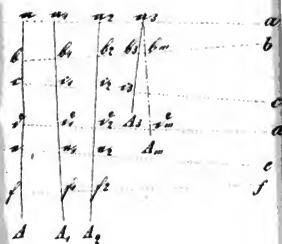 n n₁ n₂ n₃ a
b b₁ b₂ b₃ bₘ b
c v₁ v₂ v₃ c
v² v₁² v₂² A₃ vₘ² d
n n₁ n₂ Aₘ e
f f₁ f₂ f
A A₁ A₂